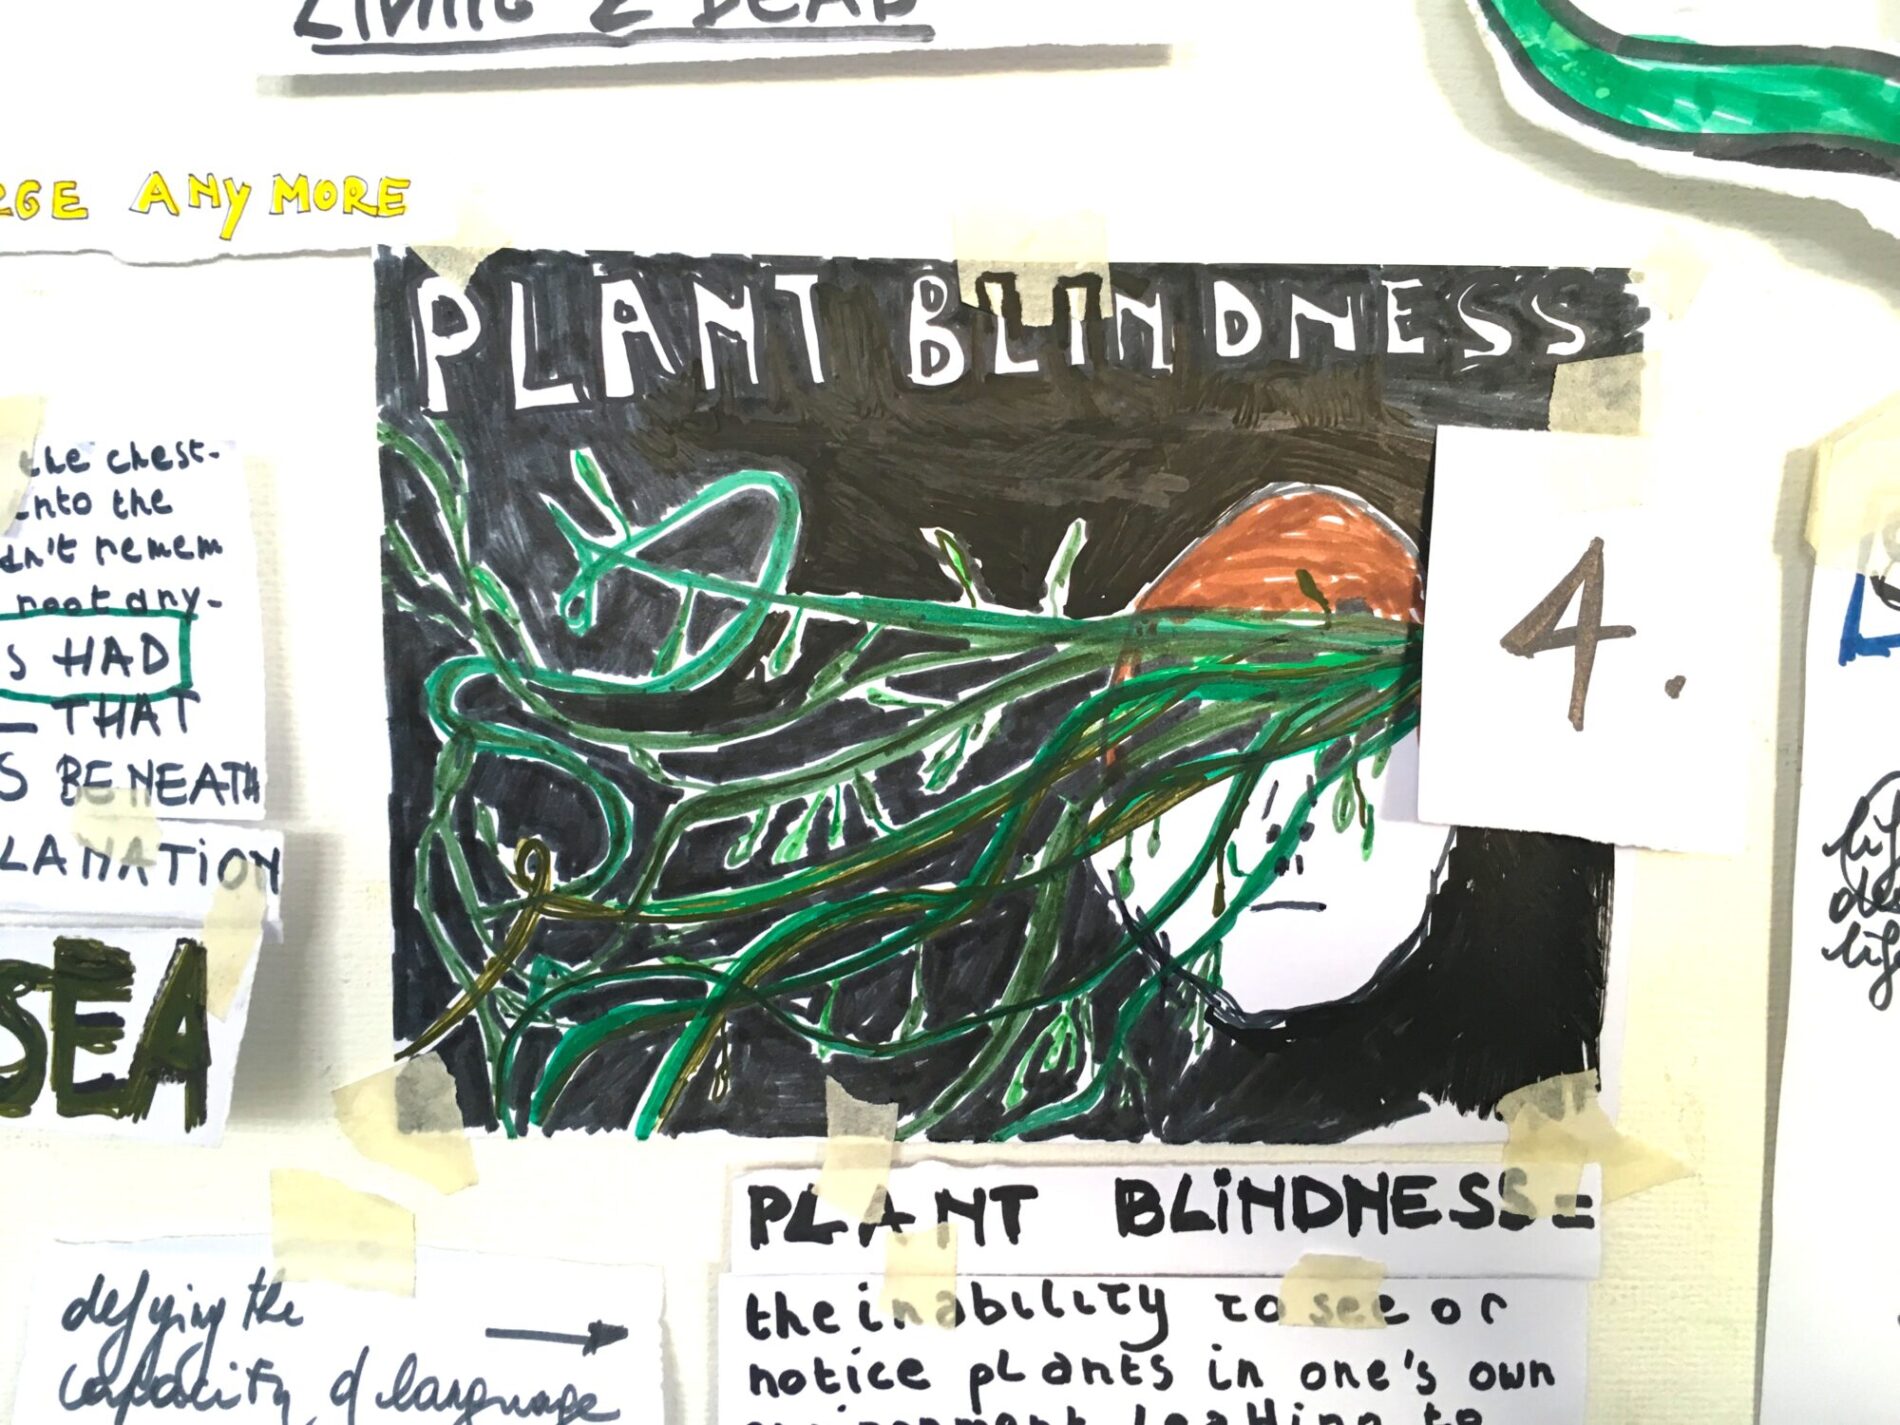 LIVING & DEAD
ANYMORE
PLANT BLINDNESS
4.
the chest-
into the
remem
root any-
S HAD
– THAT
S BENEATH
LANATION
SEA
PLANT BLINDNESS =
the inability to see or
notice plants in one's own
environment leading to
defying the
capacity of language